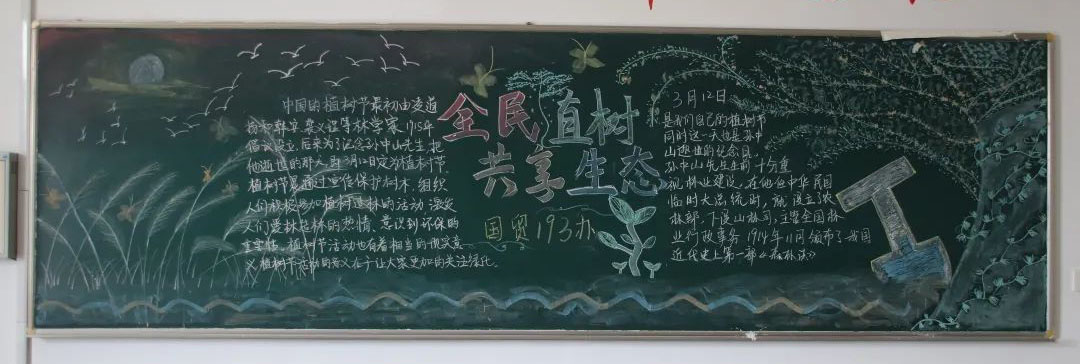 中国的植树节最初由凌道
扬和韩安、裴义理等林学家1915年
倡议设立,后来为了纪念孙中山先生,把
他逝世的那天,即3月12日定为植树节,
植树节是通过宣传保护树木,组织
人们积极参加植树造林的活动,激发
人们爱林造林的热情、意识到环保的
重要性,植树节活动也有着相当的现实意
义植树节活动的意义在于让大家更加的关注绿化。
全民直树
共享生态
国贸193办
3月12日
是我们自己的植树节
同时这一天也是孙中
山逝世的纪念日,
孙中山先生生前十分重
视林业建设。在他任中华民国
临时大总统时,就设立了农
林部,下设山林司,主管全国林
业行政事务,1914年11月颁布了我国
近代史上第一部《森林法》